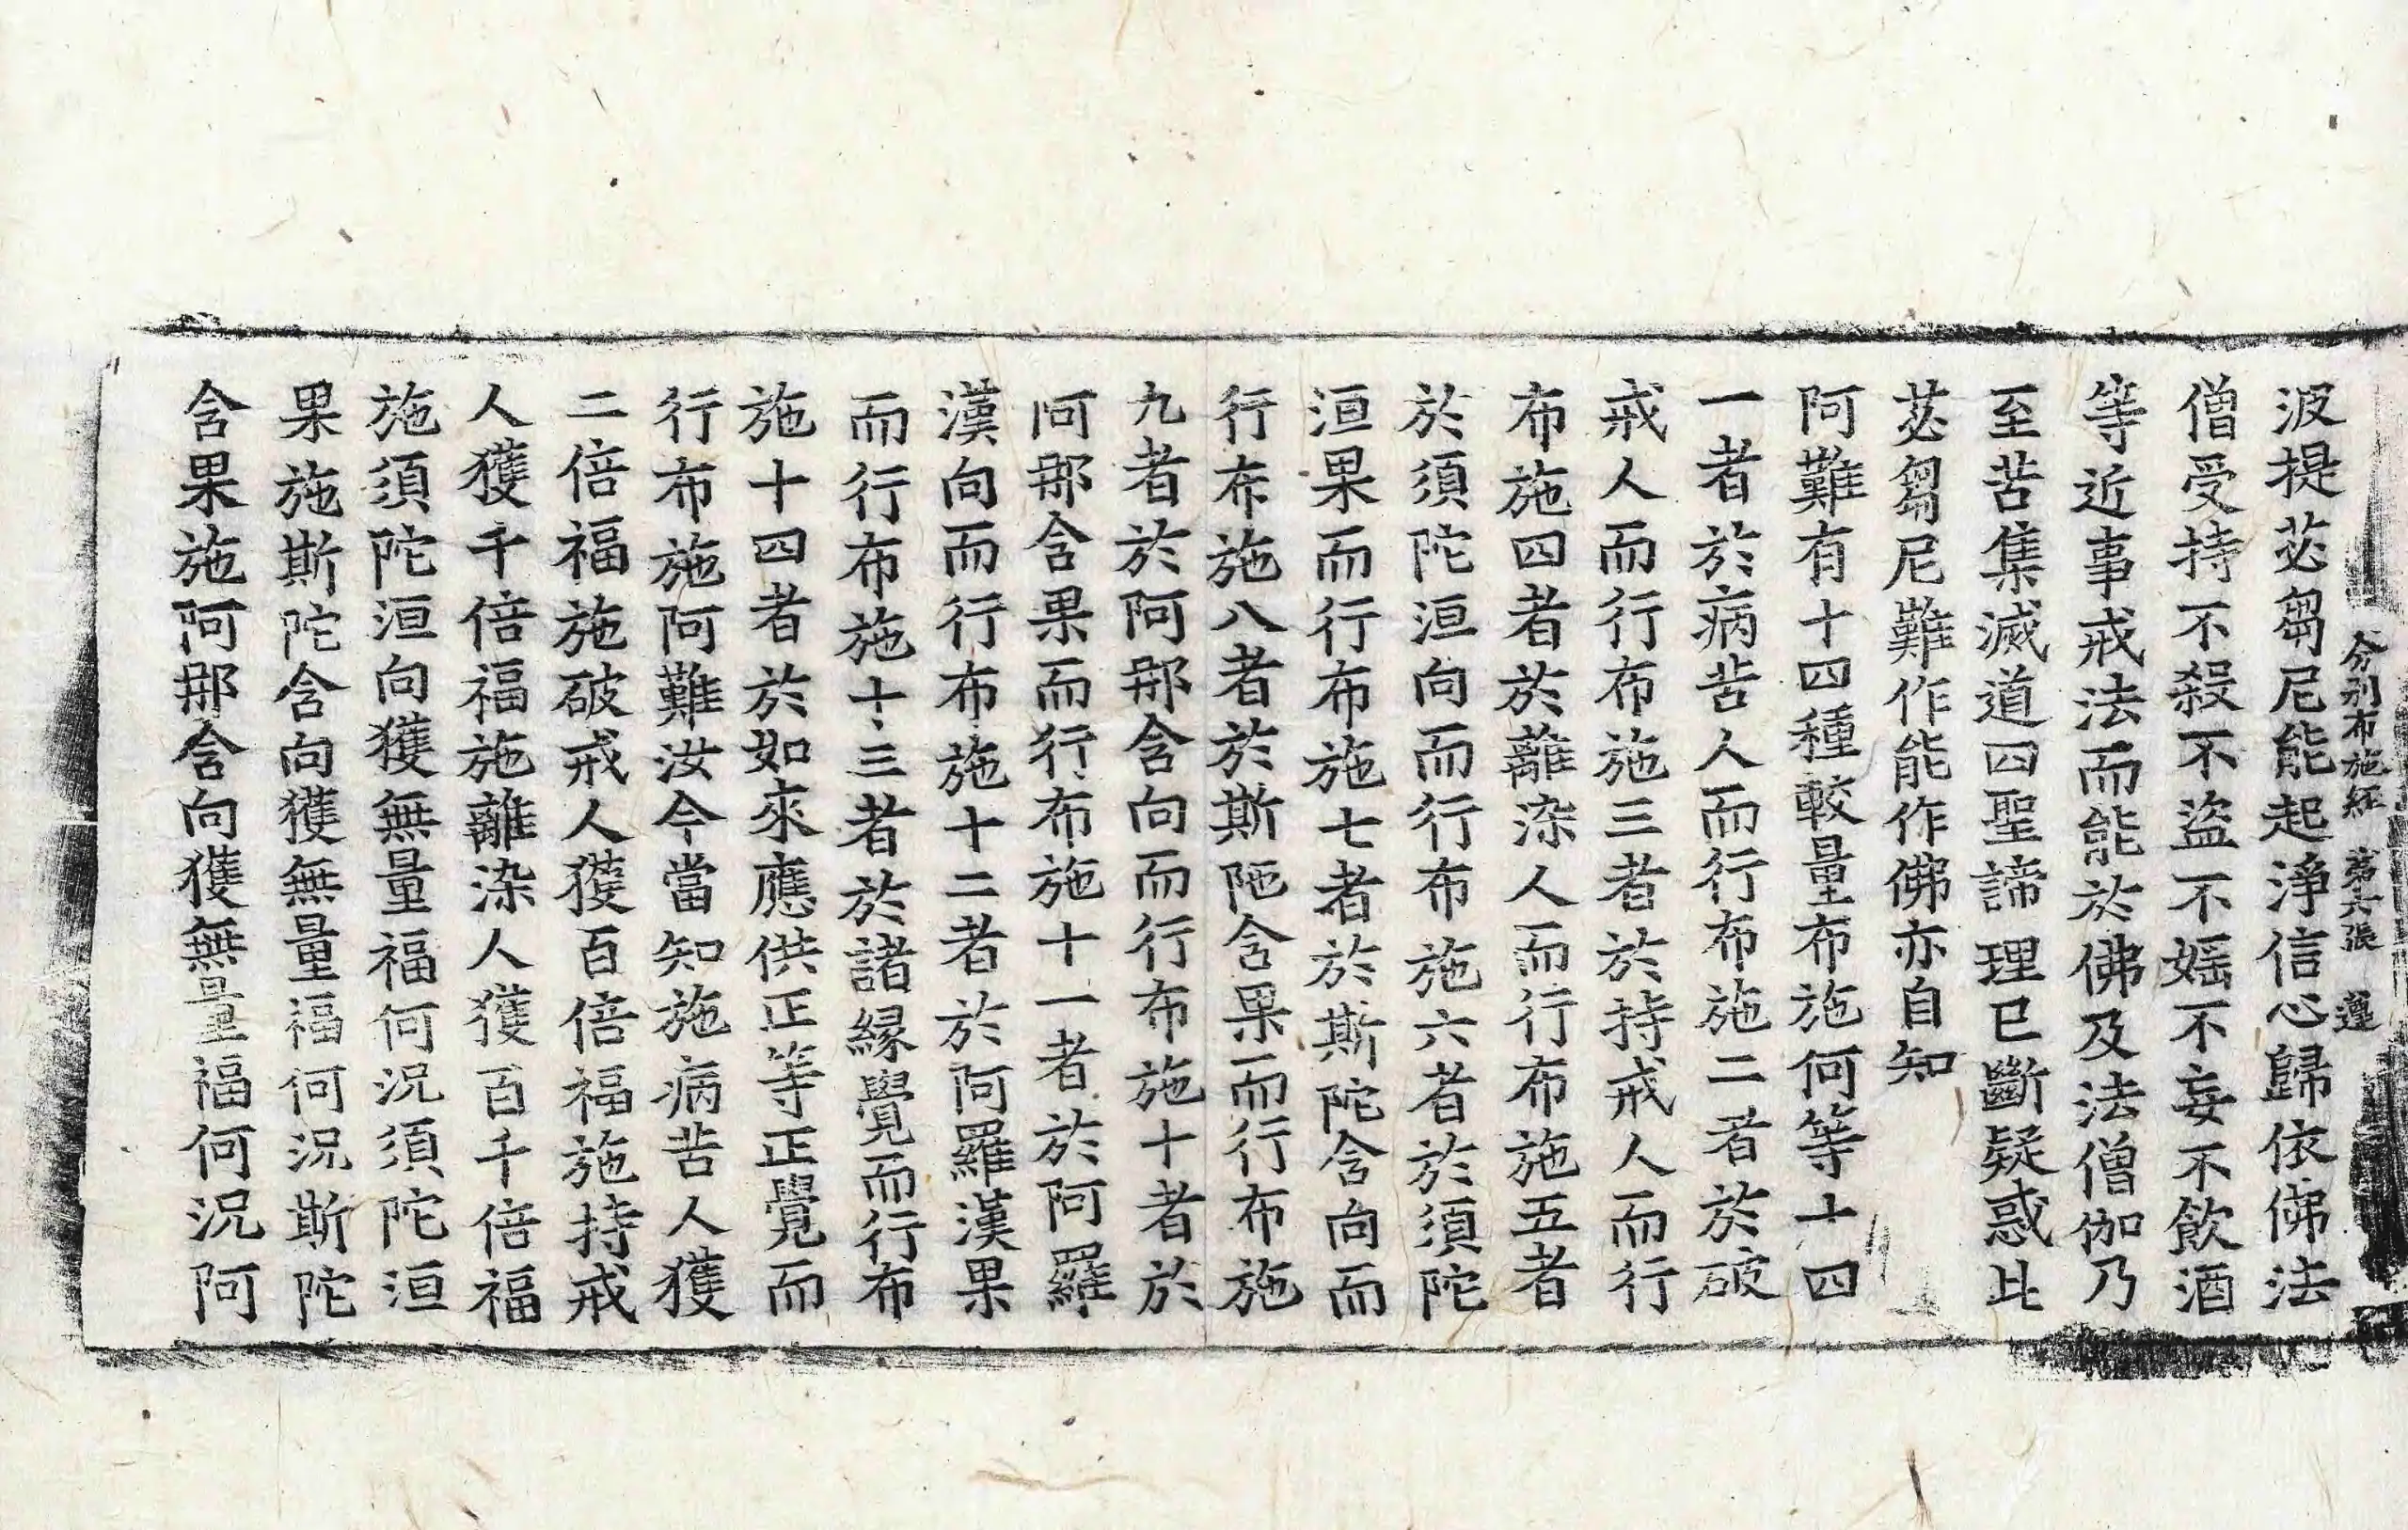 分別布施經 第六張 遵
波提苾芻尼能起淨信心歸依佛法
僧受持不殺不盜不婬不妄不飲酒
等近事戒法而能於佛及法僧伽乃
至苦集滅道四聖諦理已斷疑惑此
苾芻尼難作能作佛亦自知
阿難有十四種較量布施何等十四
一者於病苦人而行布施二者於破
戒人而行布施三者於持戒人而行
布施四者於離染人而行布施五者
於須陀洹向而行布施六者於須陀
洹果而行布施七者於斯陀含向而
行布施八者於斯陁含果而行布施
九者於阿那含向而行布施十者於
阿那含果而行布施十一者於阿羅
漢向而行布施十二者於阿羅漢果
而行布施十三者於諸緣覺而行布
施十四者於如來應供正等正覺而
行布施阿難汝今當知施病苦人獲
二倍福施破戒人獲百倍福施持戒
人獲千倍福施離染人獲百千倍福
施須陀洹向獲無量福何況須陀洹
果施斯陀含向獲無量福何況斯陀
含果施阿那含向獲無量福何況阿